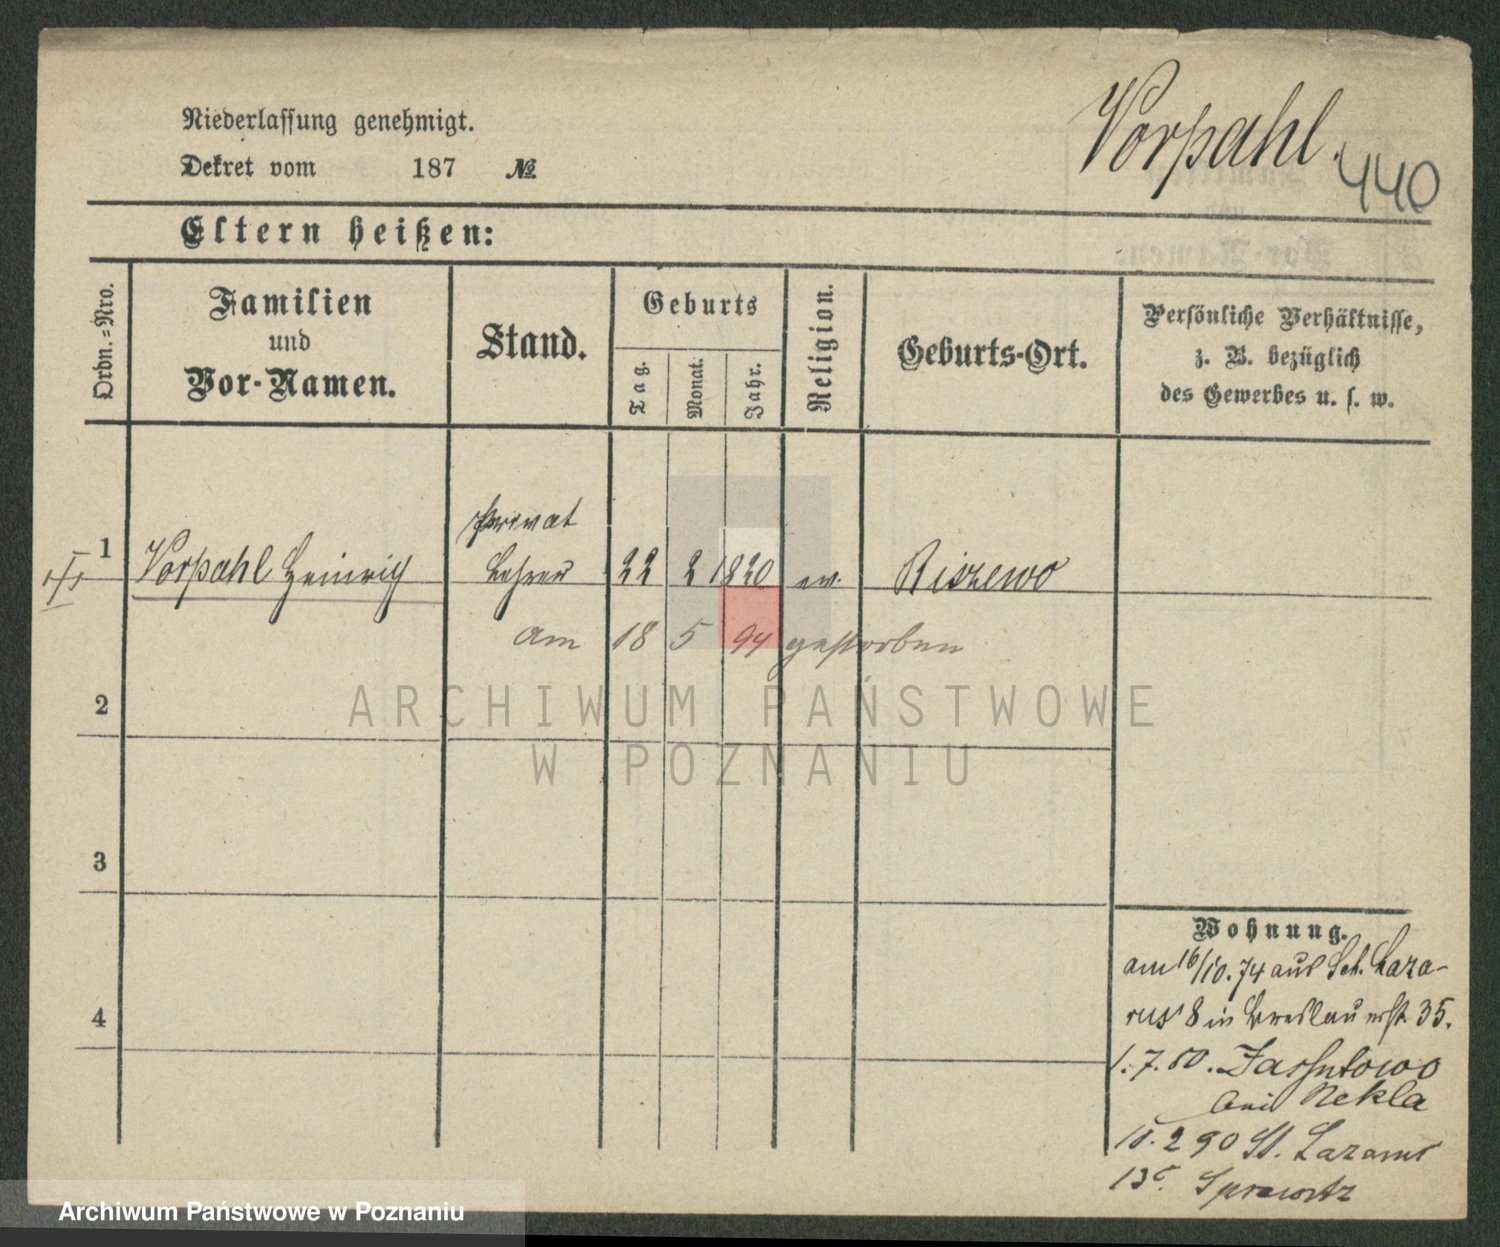 Niederlassung genehmigt.
Vorpahl.
440
Dekret vom 187 №
Eltern heißen:
Ordn.=Nro.
Familien
und
Vor-Namen.
Stand.
Geburts
Tag.
Monat.
Jahr.
Religion.
Geburts-Ort.
Persönliche Verhältnisse,
z. B. bezüglich
des Gewerbes u. s. w.
Privat
1 Vorpahl Heinrich Lehrer 22 2 1820 ev. Riszewo
am 18 5 94 gestorben
2
ARCHIWUM PAŃSTWOWE
W POZNANIU
3
4
Wohnung.
am 16/10. 74 aus Sct. Laza-
rus 8 in Breslau 35.
1. 7. 80.
bei Nekla
10. 2 90 St. Lazarus
13c.
Archiwum Państwowe w Poznaniu